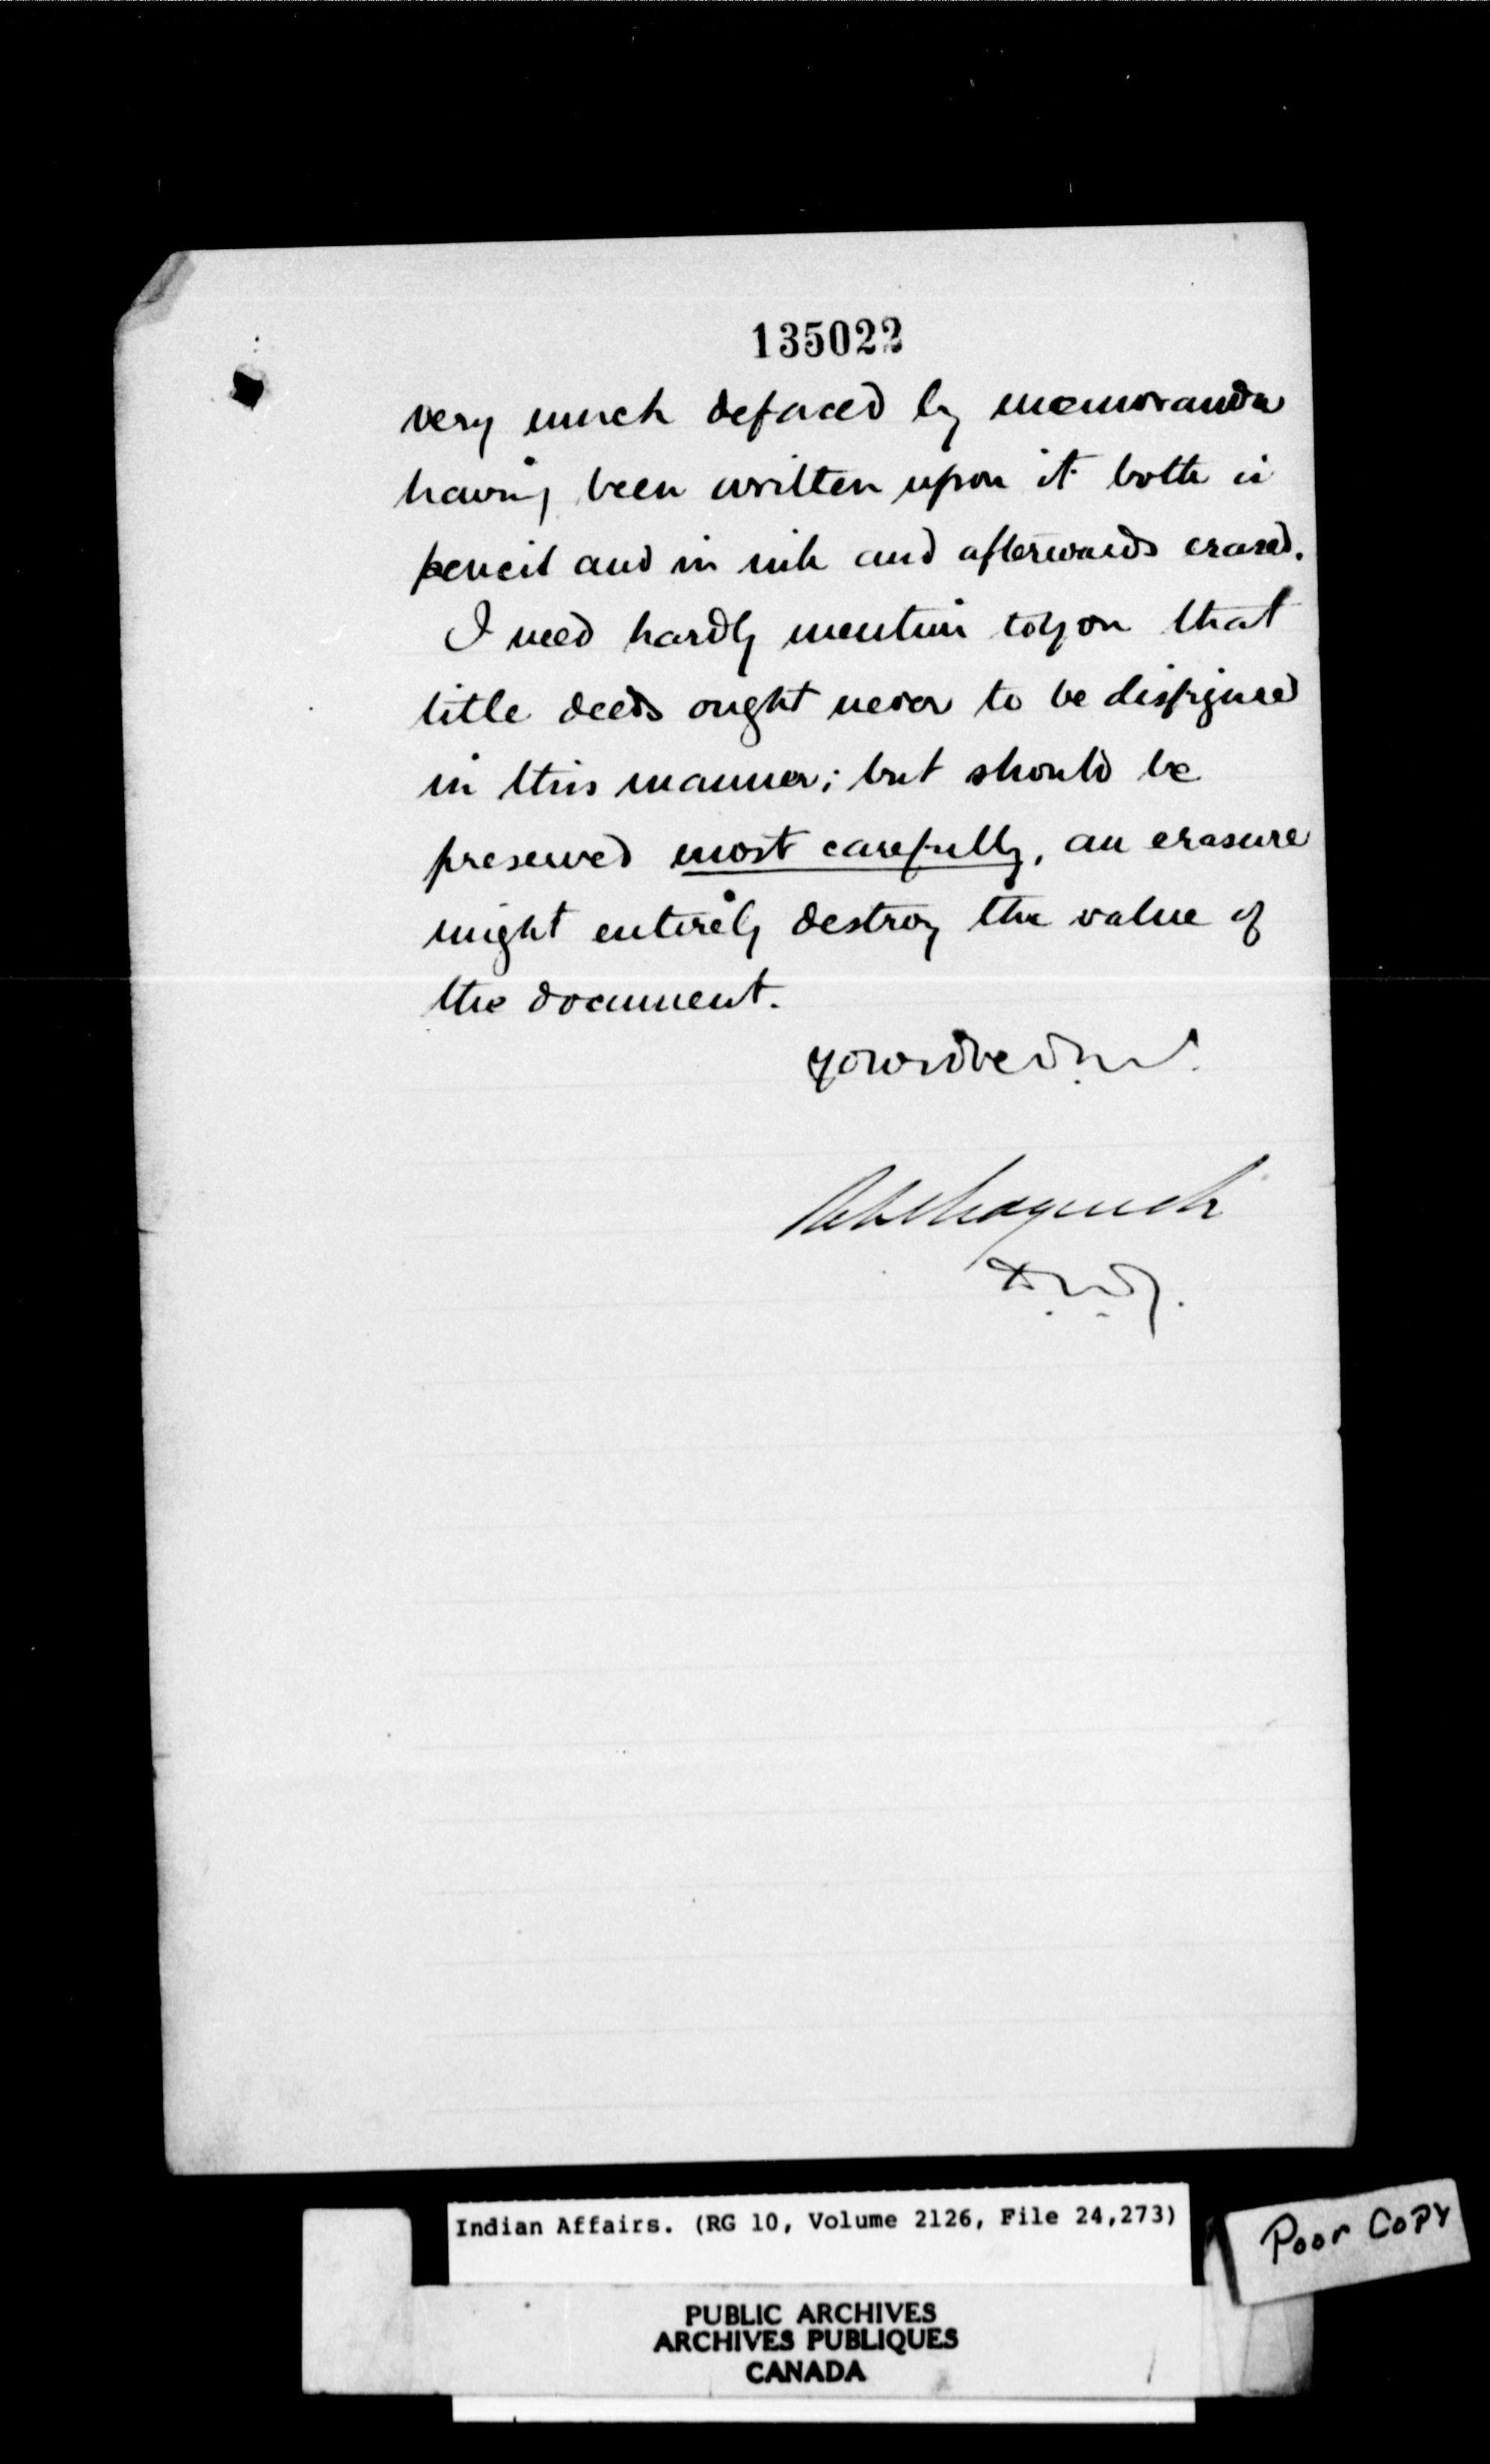 135022
very much defaced by memoranda
having been written upon it both in
pencil and in ink and afterwards erased.
I need hardly mention to you that
title deeds ought never to be disfigured
in this manner; but should be
preserved most carefully, an erasure
might entirely destroy the value of
the document.
Indian Affairs. (RG 10, Volume 2126, File 24,273)
Poor Copy
PUBLIC ARCHIVES
ARCHIVES PUBLIQUES
CANADA